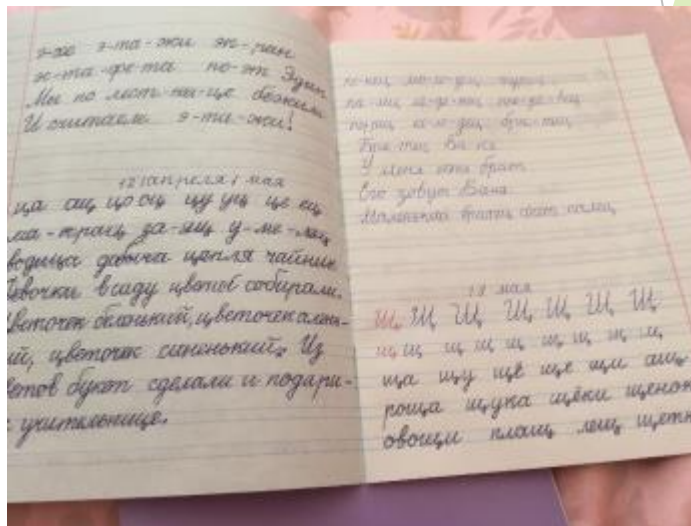 э-хо э-та-жи эк-ран
эс-та-фе-та по-эт Эдик
Мы по лест-ни-це бежим
И считаем э-та-жи!
12 апреля 1 мая
ца ац цо оц цу уц це ец
за-яц у-ме-лец
водица добыча цапля чайник
Девочки в саду цветов собирали.
Цветочек беленький, цветочек алень-
ий, цветочек синенький. Из
ветов букет сделали и подари-
учительнице.
мо-ло-дец
па-лец
ко-ло-дец бра-тец
У меня есть брат.
Его зовут Ваня.
Маленький братец сосёт палец
18 мая
Щ Щ Щ Щ Щ Щ Щ
щ щ щ щ щ щ щ щ
ща щу щё ще щи ащ
роща щука щёки щенок
овощи плащ лещ щетк